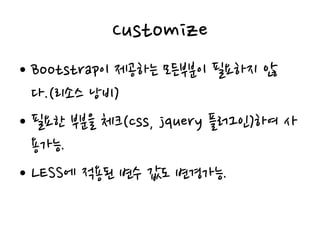 customize
• Bootstrap이 제공하는 모든부분이 필요하지 않
다.(리소스 낭비)
• 필요한 부분을 체크(css, jquery 플러그인)하여 사
용가능.
• LESS에 적용된 변수 값도 변경가능.